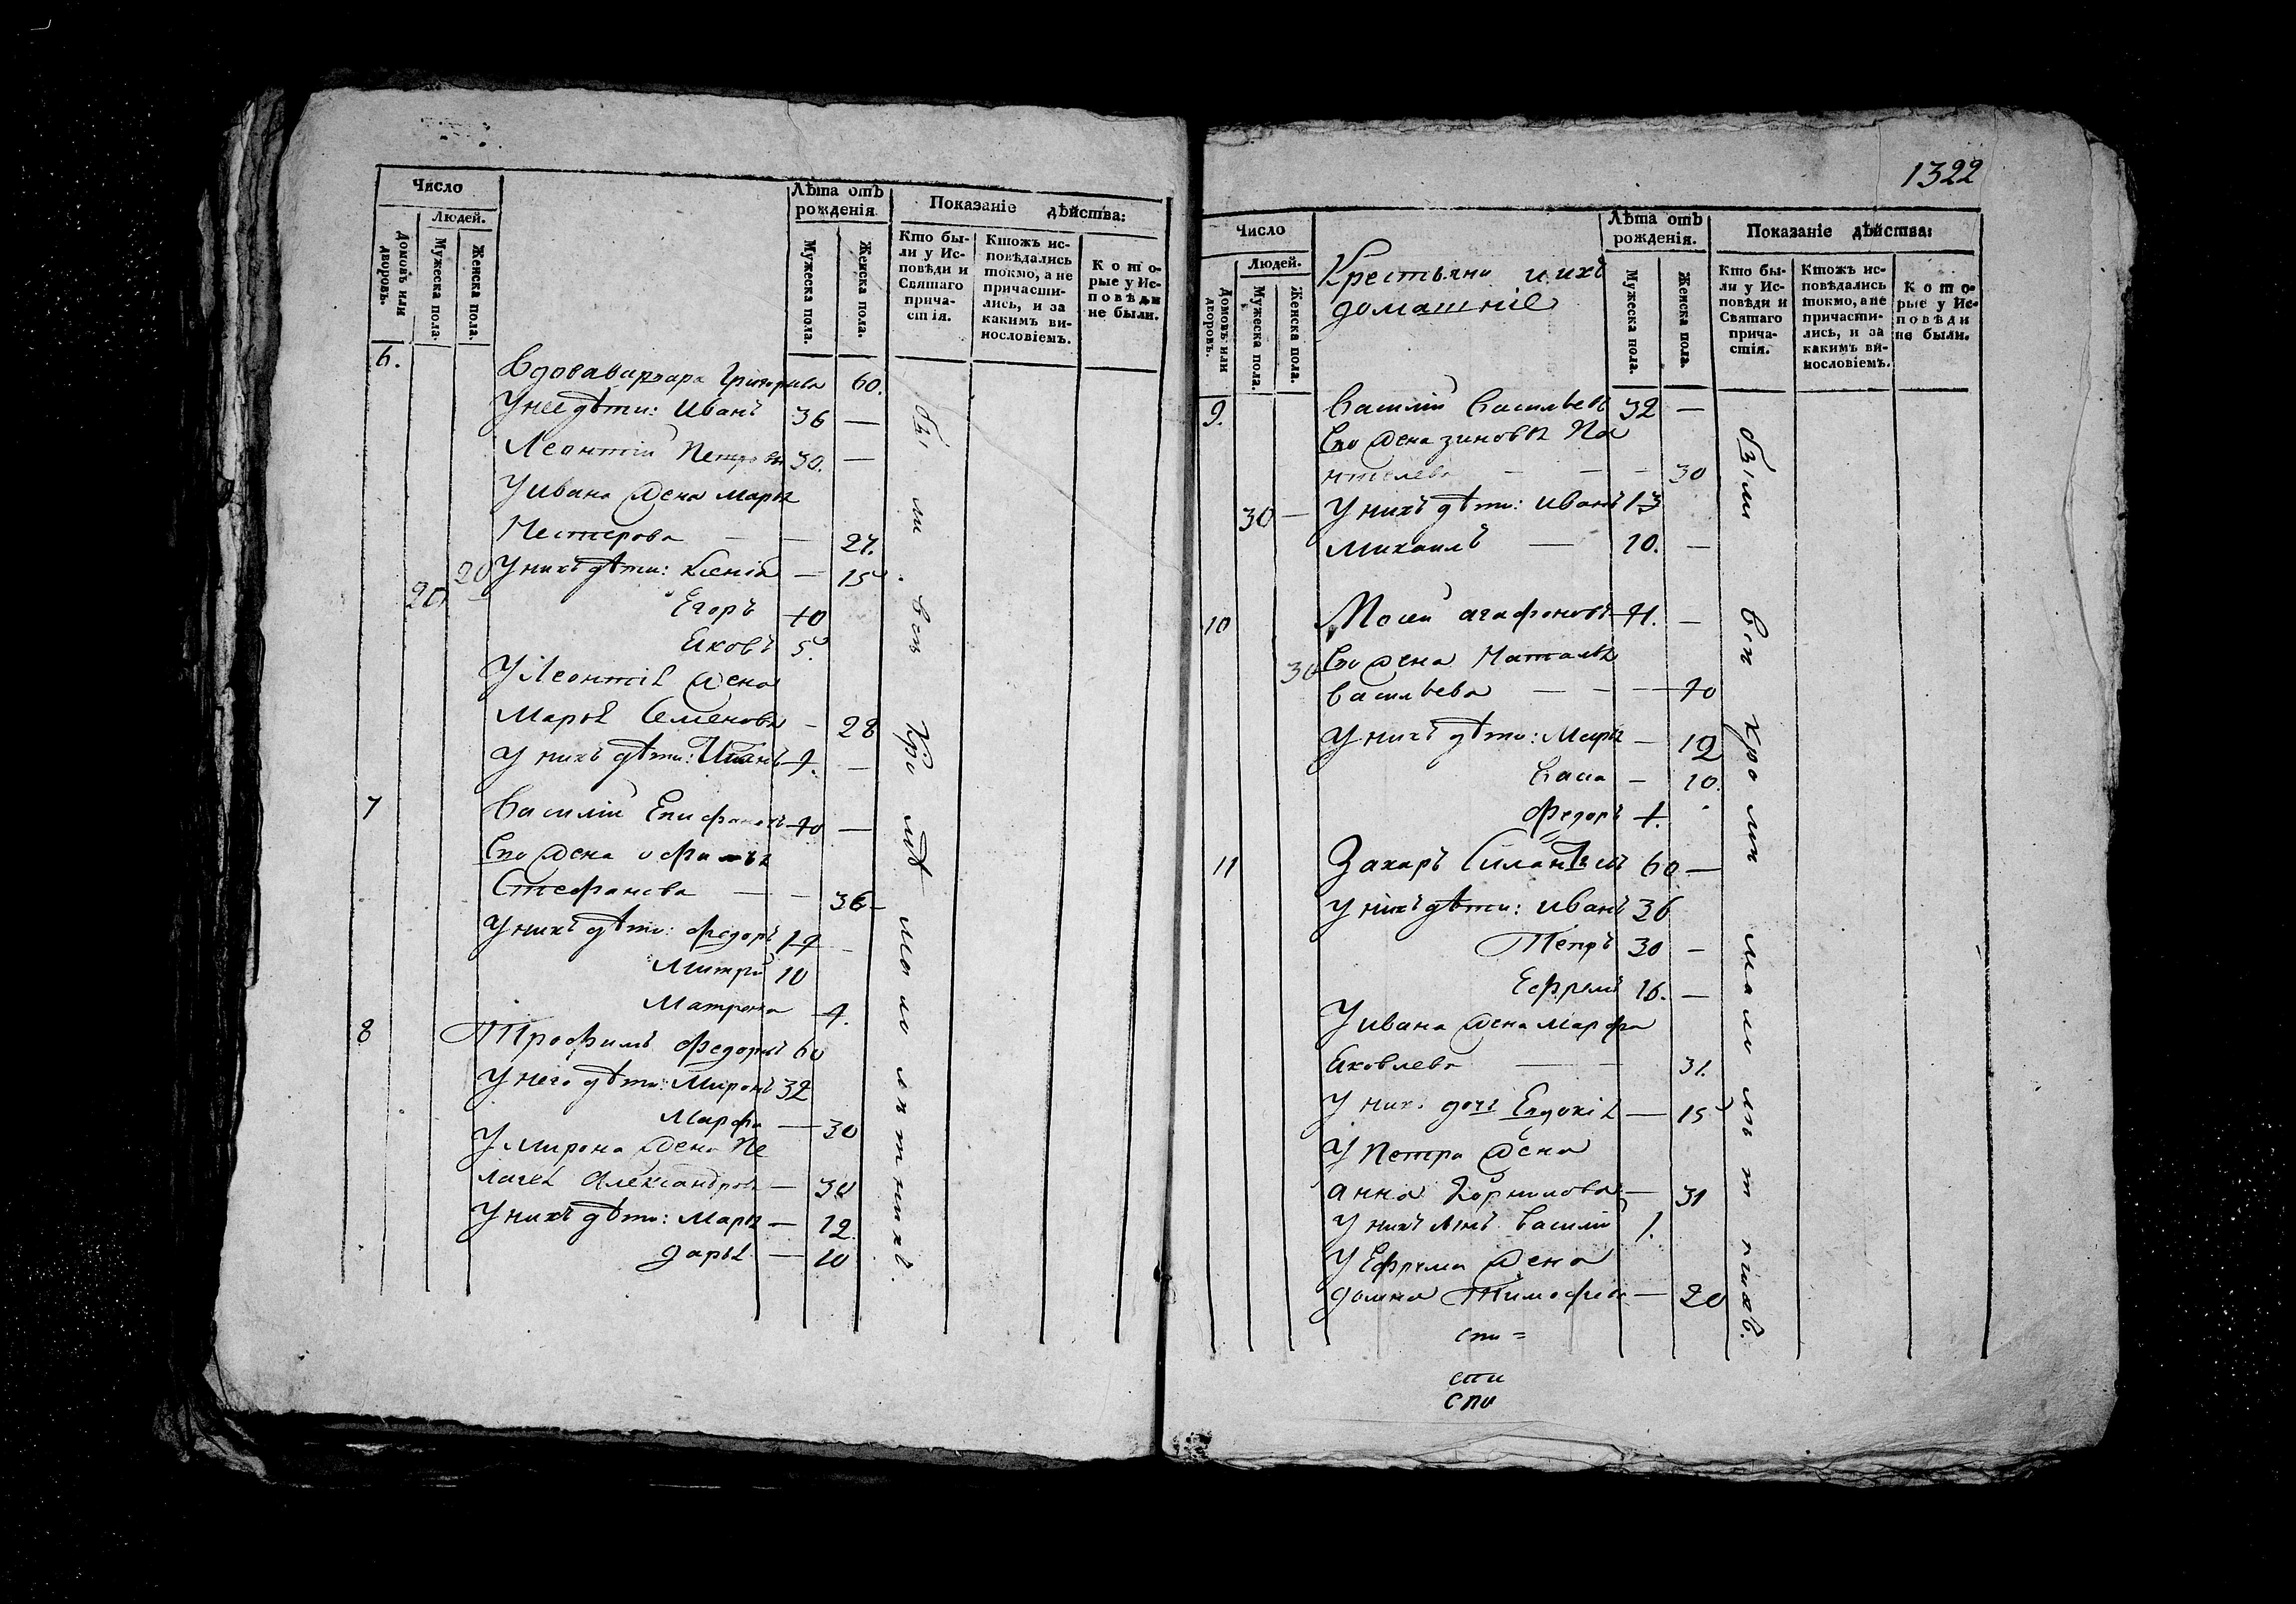 Число
Людей.
Домовъ или дворовъ.
Мужеска пола.
Женска пола.
Лѣта отъ рожденія
Мужеска пола.
Женска пола.
Показаніе дѣйства:
Кто бы-
ли у Ис-
повѣди и
Святаго
прича-
стія.
Ктожъ ис-
повѣдались
токмо, а не
причасти-
лись, и за
какимъ ви-
нословіемъ.
Кото-
рые у Ис-
повѣди
не были.
6. Вдова варвара Григорьева 60.
У нее дѣти: Иванъ 36 —
Леонтій Петровы 30. —
У ивана жена марья
Нестерова — — 27.
20 У нихъ дѣти: Ксенія — 15
20 Егоръ 10
Яковъ 5.
У Леонтія жена
Марья Семенова — 28
У нихъ дѣти: —
7 Василій Епифановъ 40 —
Его жена
Стефанова — — 36 —
У нихъ дѣти: Федоръ —
Митрій 10
Матрона
8 Трофимъ Федоровъ 60
У него дѣти: Миронъ 32
Марфа — 30
У мирона жена Пе
лагея Александрова — 30
У нихъ дѣти: Марья — 12
дарья — 10
были все кромѣ малолѣтнихъ.
1322
Число
Людей.
Домовъ или дворовъ.
Мужеска пола.
Женска пола.
Крестьяни и ихъ
домашніе
Лѣта отъ
рожденія.
Мужеска пола.
Женска пола.
Показаніе дѣйства:
Кто бы-
ли у Ис-
повѣди и
Святаго
прича-
стія.
Ктожъ ис-
повѣдались
токмо, а не
причасти-
лись, и за
какимъ ви-
нословіемъ.
Кото-
рые у Ис-
повѣди
не были.
9. Василій Васильевъ 32 —
Его жена зиновья Па
нтелева — — — 30
30 — У нихъ дѣти: иванъ 13
михаилъ — 10. —
10 Мосей агафоновъ 41. —
30 Его жена Наталья
васильева — — — 40
У нихъ дѣти: Марья — 12
— 10.
Федоръ
11 Захаръ Силантьевъ 60 —
У нихъ дѣти: иванъ 36
Петръ 30 —
Ефремъ 16. —
У ивана жена марфа
Яковлева — — 31.
У нихъ дочь Евдокія — 15
У Петра жена
анна Корнилова — 31
У нихъ сынъ василій 1.
У Ефрема жена
домна Тимофеева — 20
были все кроме малолѣтнихъ.
спи =
спи
спи